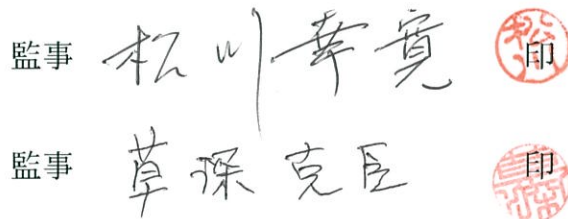 監事 松川幸寛 印
監事 草深克臣 印